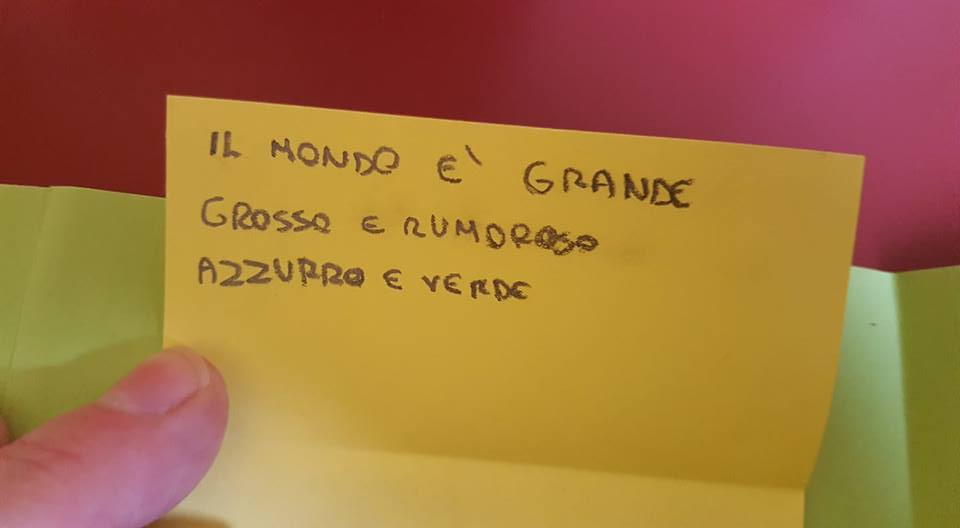 IL MONDO E' GRANDE
GROSSO E RUMOROSO
AZZURRO E VERDE